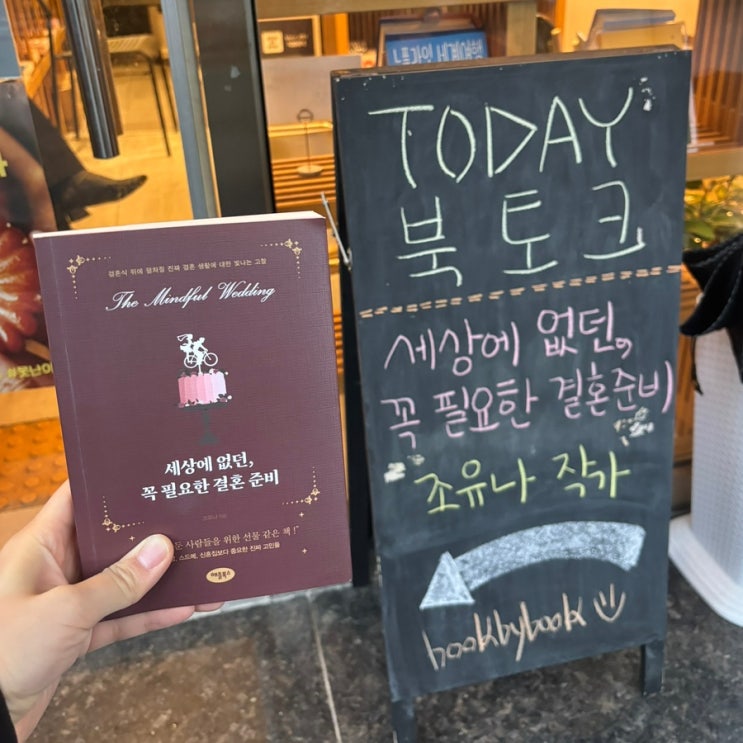 결혼식 뒤에 펼쳐질 진짜 결혼 생활에 대한 빛나는 고찰
The Mindful Wedding
세상에 없던,
꼭 필요한 결혼 준비
조유나 지음
둔 사람들을 위한 선물 같은 책!"
스드메, 신혼집보다 중요한 진짜 고민들
TODAY
북토크
세상에 없던,
꼭 필요한 결혼준비
조유나 작가
bookbybook
#못난이